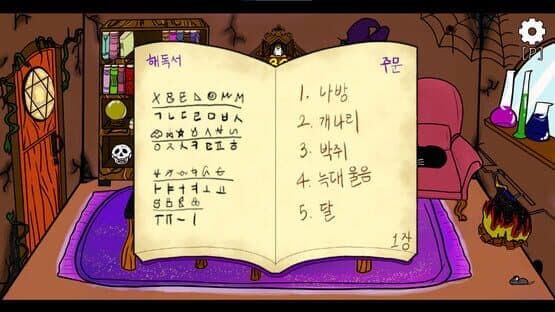 [P]
해독서
ㄱㄴㄷㄹㅁㅂㅅ
ㅇㅈㅊㅋㅌㅍㅎ
ㅏㅑㅓㅕㅗㅛ
ㅜㅠㅡㅣ
주문
1. 나방
2. 개나리
3. 박쥐
4. 늑대 울음
5. 달
1장